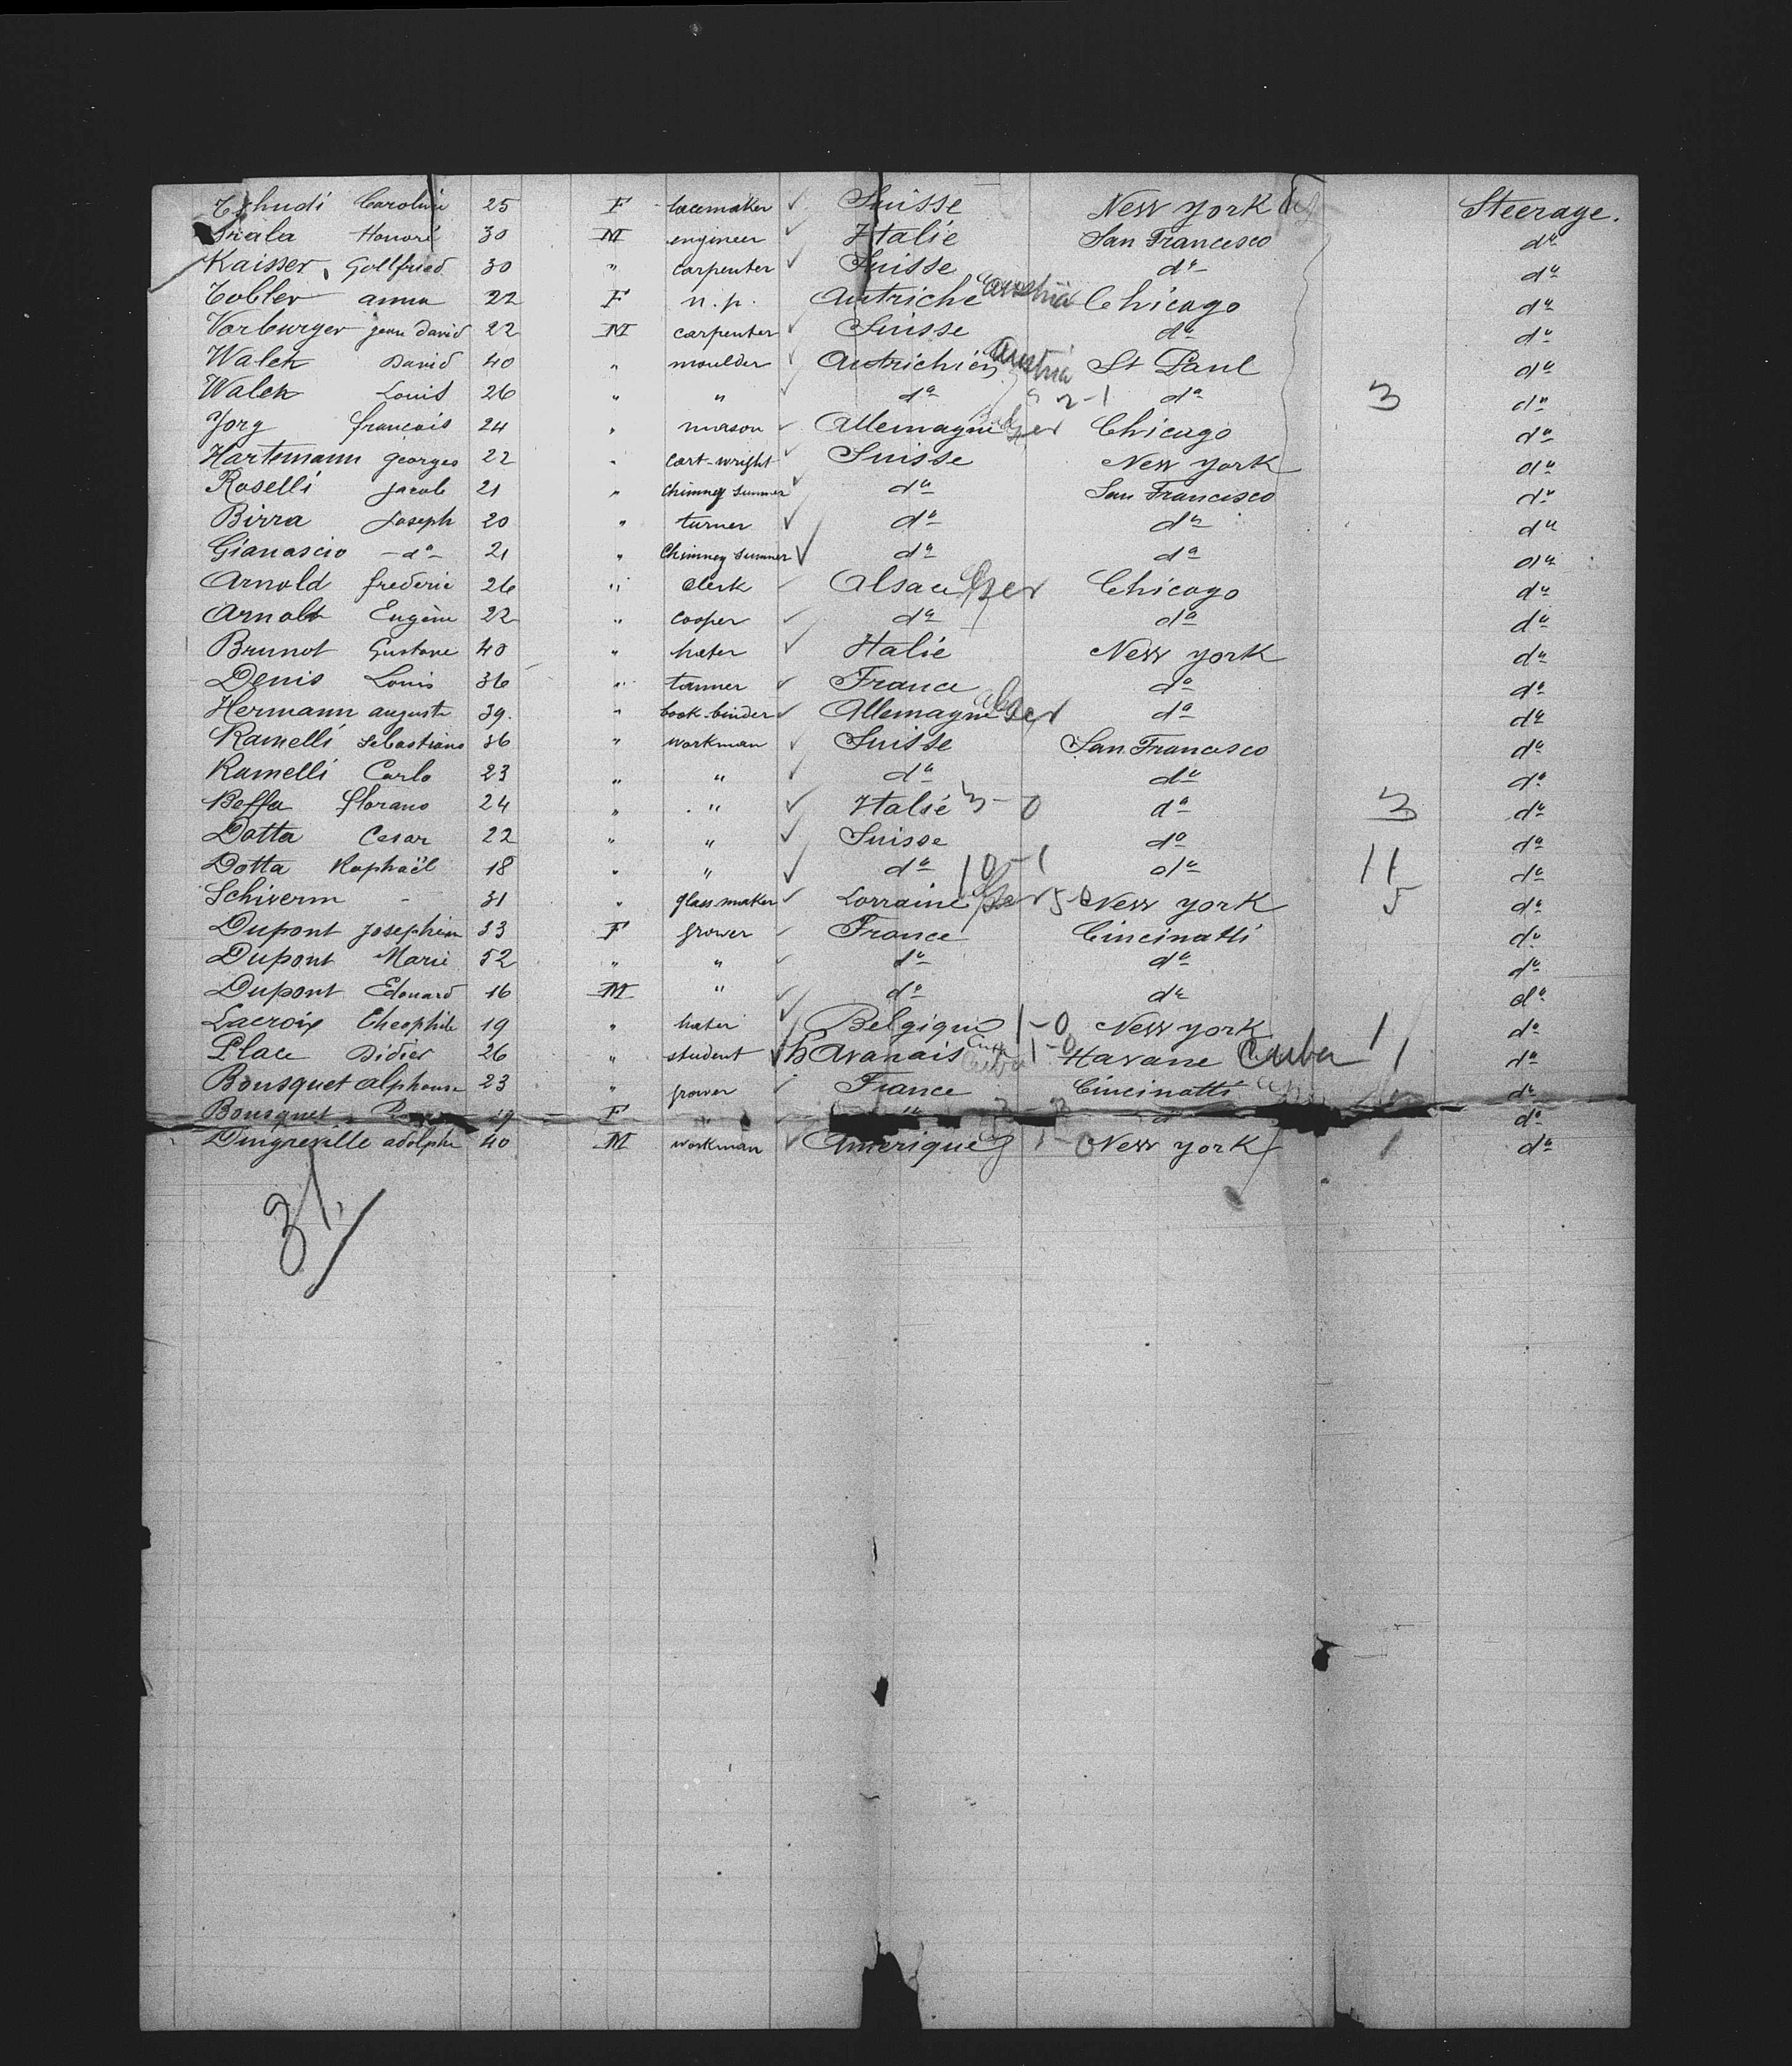 Tschudi Caroline 25 F lacemaker ✓ Suisse New york Steerage.
Honoré 30 M engineer ✓ Italie San Francisco dº
Kaisser, Gottfried 30 " carpenter ✓ Suisse dº dº
Tobler anna 22 F n.p. Autriche Austria Chicago dº
Vorburger jean David 22 M carpenter ✓ Suisse dº dº
Walch David 40 " moulder ✓ Autrichien Austria St Paul dº
Walch Louis 26 " " ✓ dº 2-1 dº 3 dº
Jorg francois 24 " mason ✓ Allemagne Ger Chicago dº
Hartemann georges 22 " cart-wright ✓ Suisse New york dº
Roselli jacob 21 " Chimney summer ✓ dº San Francisco dº
Birra Joseph 20 " turner ✓ dº dº dº
Gianascio - dº - 21 " Chimney summer ✓ dº dº dº
Arnold frederic 26 " clerk ✓ Alsace Ger Chicago dº
Arnold Eugène 22 " cooper ✓ dº dº dº
Brunot Gustave 40 " hater ✓ Italie New york dº
Denis Louis 36 " tanner ✓ France dº dº
Hermann auguste 39. " book-binder ✓ Allemagne Ger dº dº
Ramelli Sebastiano 36 " workman ✓ Suisse San Francisco dº
Ramelli Carlo 23 " " ✓ dº dº dº
Beffa florano 24 " " ✓ Italie 3-0 dº 3 dº
Dotta Cesar 22 " " ✓ Suisse dº dº
Dotta Raphaël 18 " " ✓ dº 10-1 dº 11 dº
Schiverm - 31 " glass maker ✓ Lorraine Ger 5-0 New york 5 dº
Dupont josephine 33 F grower ✓ France Cincinatti dº
Dupont Marie 52 " " ✓ dº dº dº
Dupont Edouard 16 M " ✓ dº dº dº
Lacroix Theophile 19 " hater ✓ Belgique 1-0 New york 1 dº
Place Didier 26 " student ✓ havanais Cuba 1-0 Havane Cuba 1 dº
Bousquet alphonse 23 " grower ✓ France Cincinatti dº
Bousquet 19 F " " dº
Dingreville adolphe 40 M workman ✓ Amerique 1-0 New york 1 dº
31